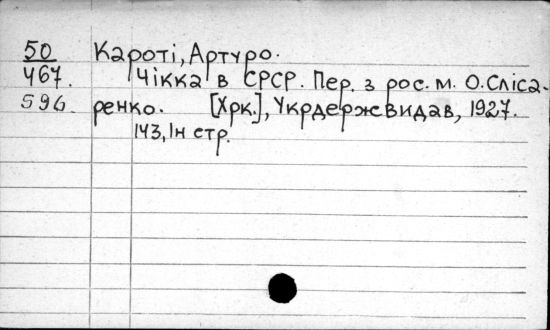 50 Кароті, Артуро.
467. Чікка в СРСР. Пер. з рос. м. О. Сліса-
596. ренко. [Хрк.], Укрдержвидав, 1927.
143, Ін стр.